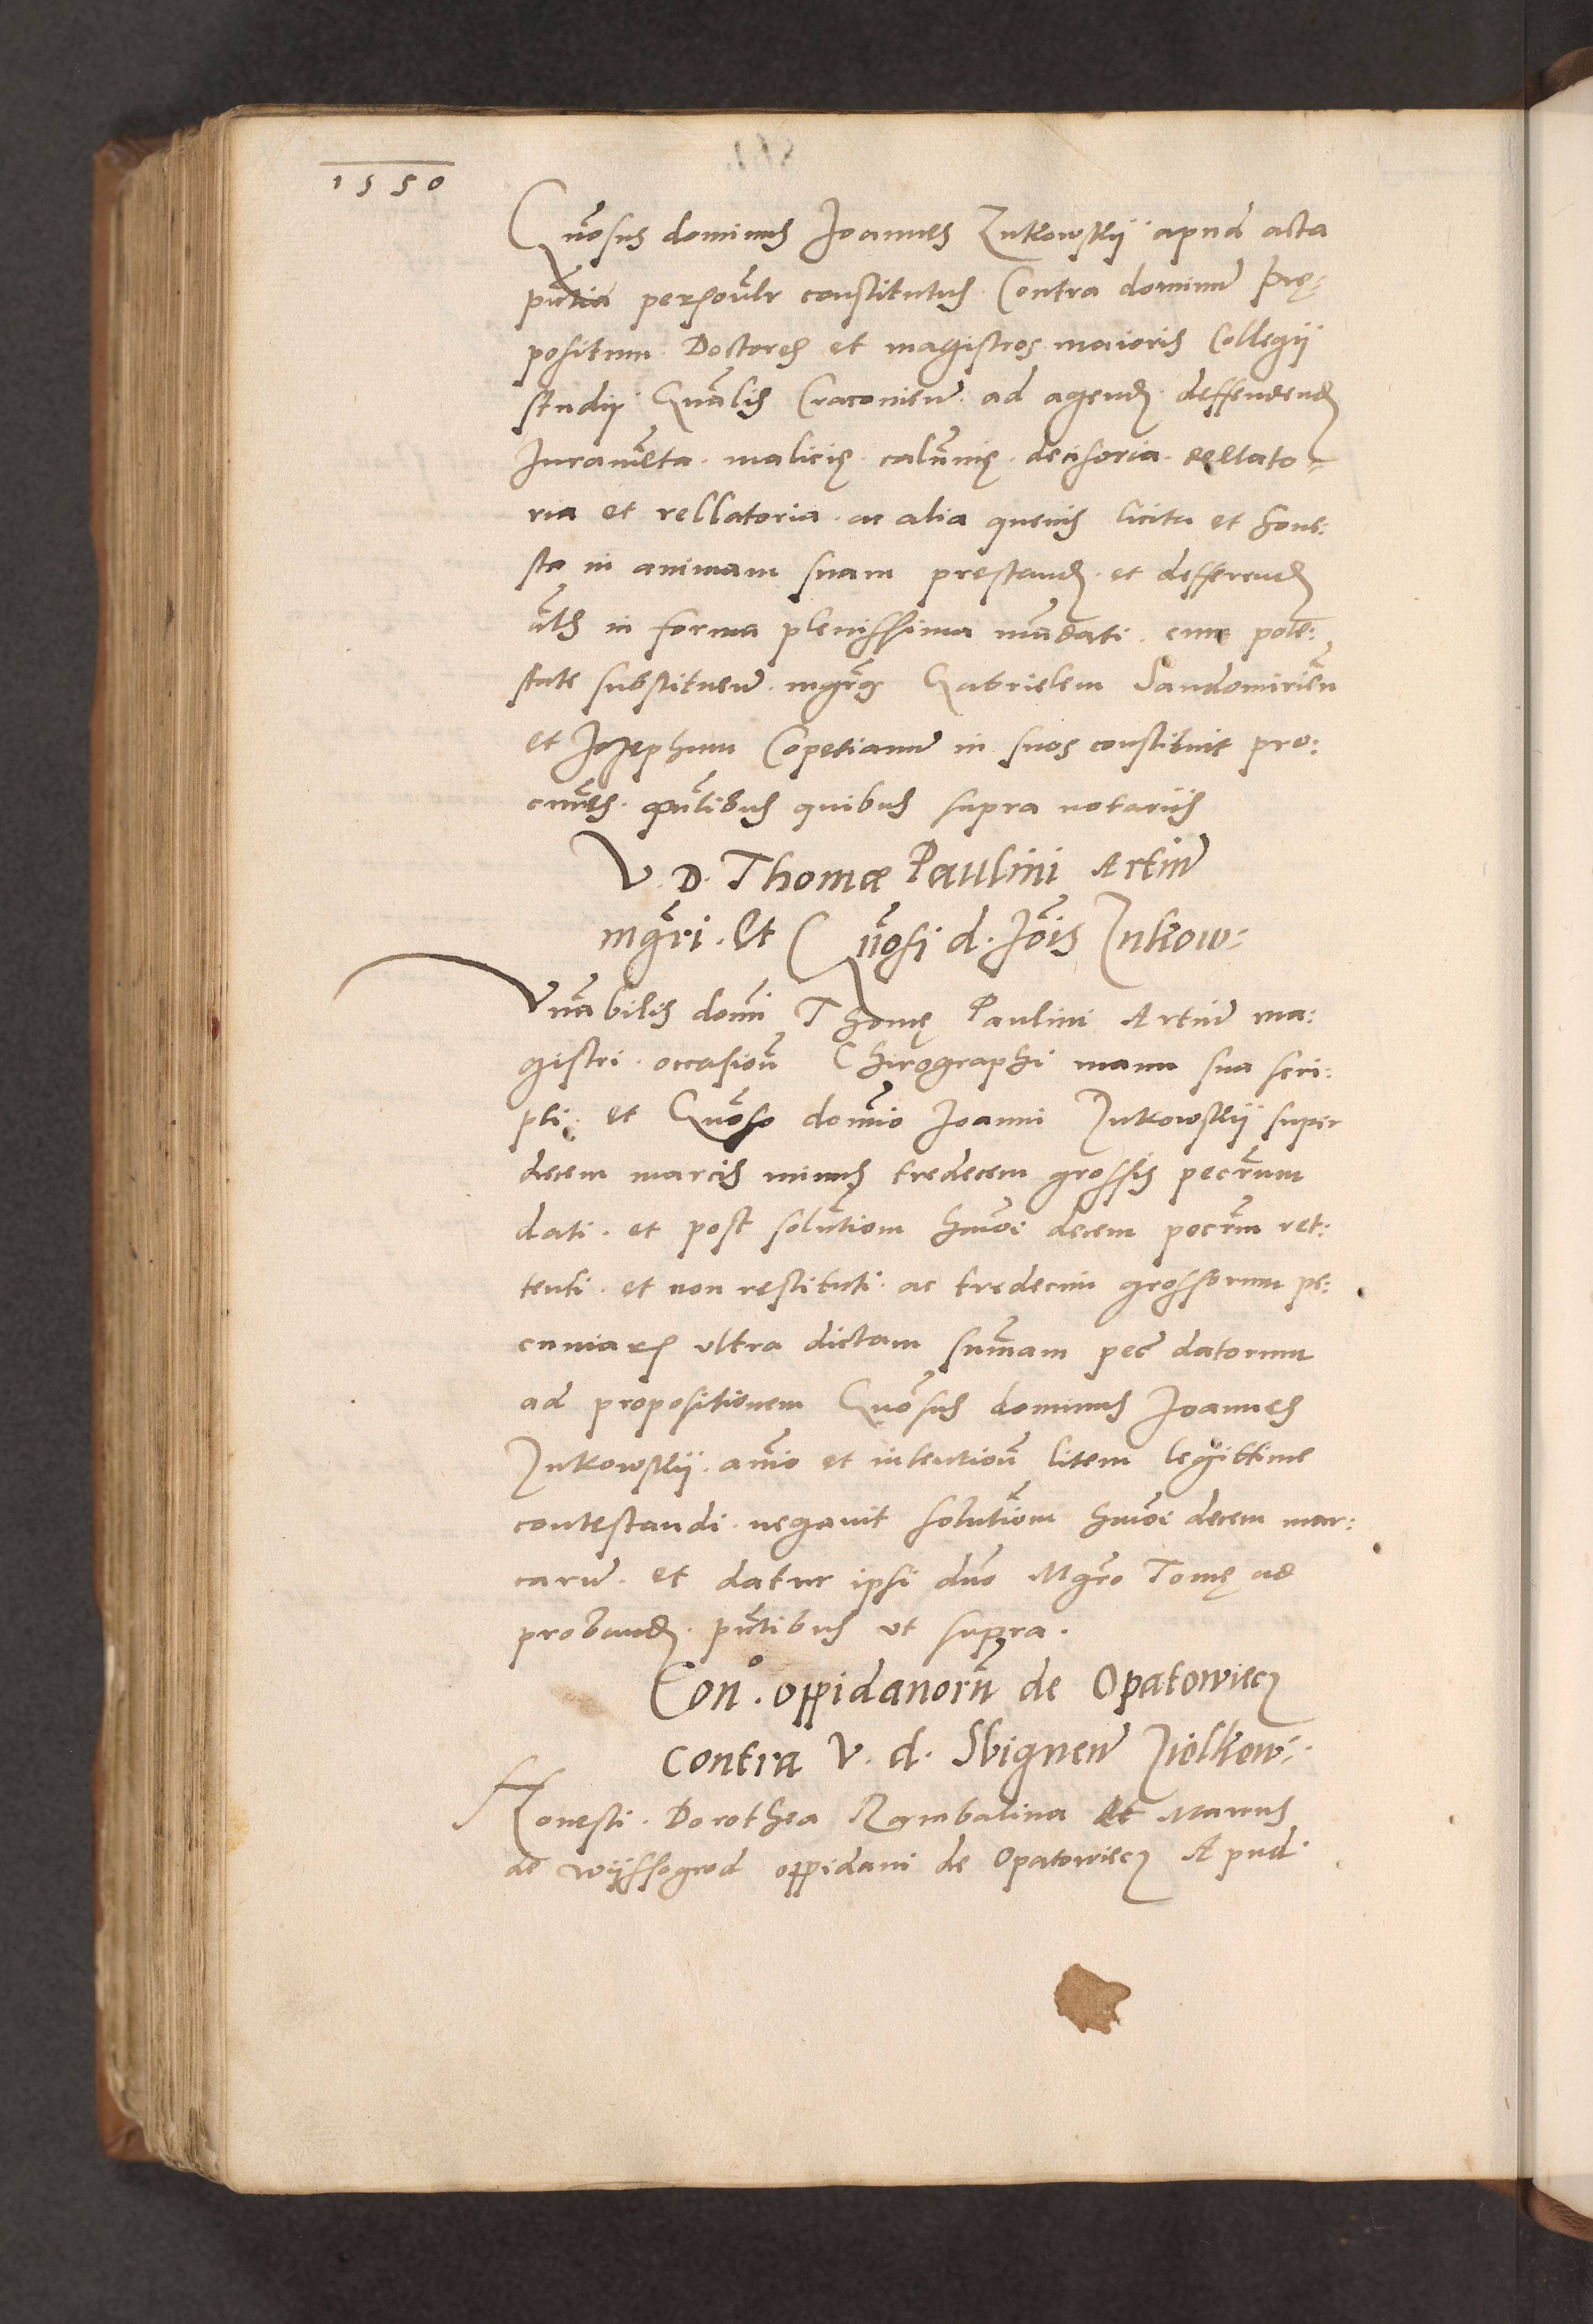 1550
Gn̄osus dominus Joannes Zukowskij apud acta
pn̄tia personalr constitutus Contra dominū Prę:
positum Doctores et magistros maioris Collegij
studij Gn̄alis Cracouien̄ ad agend deffendend
Juramēta malicię calūnię decisoria
ria et rellatoria ac alia quęuis licita et hone:
sta in animam suam prestand et defferend
als in forma plenissima mādati cum potē:
state substituen̄ mgr̄os Gabrielem Sandomirien̄
et Josephum in suos constituit pro:
cur̄es pn̄tibus quibus supra notariis
V. D. Thomæ Paulini Artiū
mgr̄i. Et Gn̄osi d. Jois Zukow:
Vn̄abilis domi Thomę Paulini Artiū ma:
gistri occasioē Chirographi manu sua scri:
pti et Gn̄oso domio Joanni Zukowskij super
decem marcis minus tredecem grossis pecr̄um
dati et post solutiom hmōi decem pecr̄m ret:
tenti et non restituti ac tredecim grossorum pe:
cuniar ultra dictam sumām pec̄ datorum
ad propositionem Gn̄osus dominus Joannes
Zukowskij aīo et intentioē litem legittime
contestandi negauit solutiom hmōi decem mar:
carū et datur ipsi dno Mgr̄o Tomę ad
proband pn̄tibus ut supra.
Con.º oppidanorū de Opatowiecz
contra V. d. Sbigneū Ziolkow:
Honesti Dorothea et
de Wijssogrod oppidani de Opatowiecz Apud